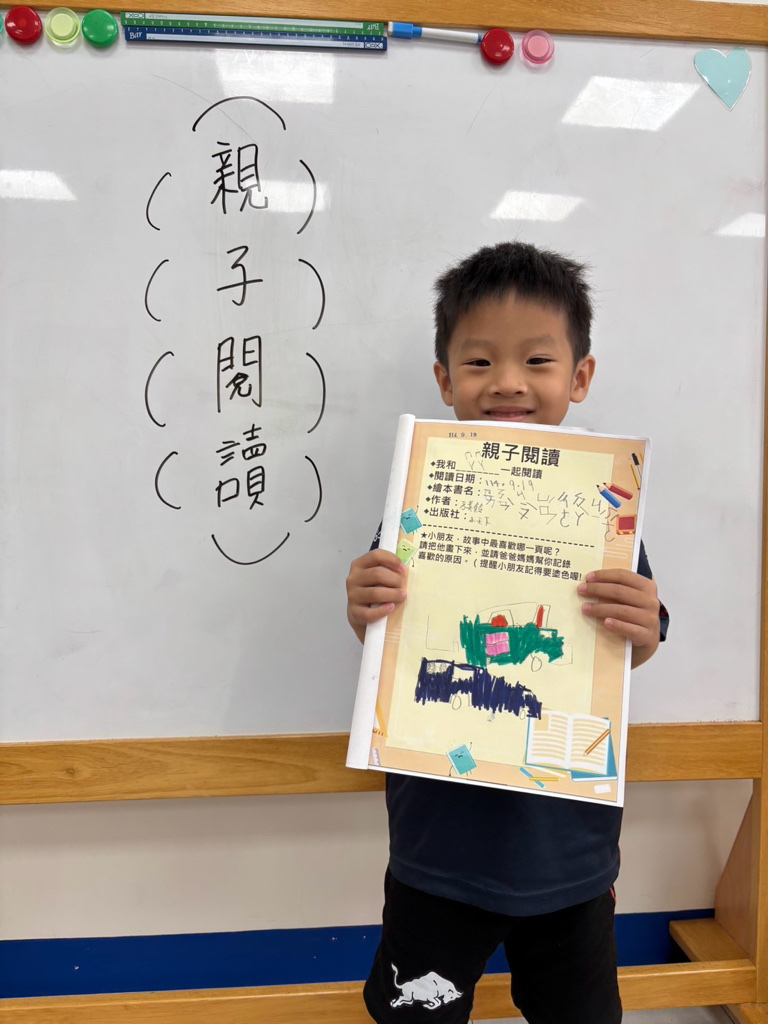 親子閱讀
親子閱讀
◆我和________一起閱讀
◆閱讀日期：114.9.19
◆繪本書名：
◆作者：
◆出版社：
★小朋友，故事中最喜歡哪一頁呢？
請把他畫下來，並請爸爸媽媽幫你記錄
喜歡的原因。（提醒小朋友記得要塗色喔!